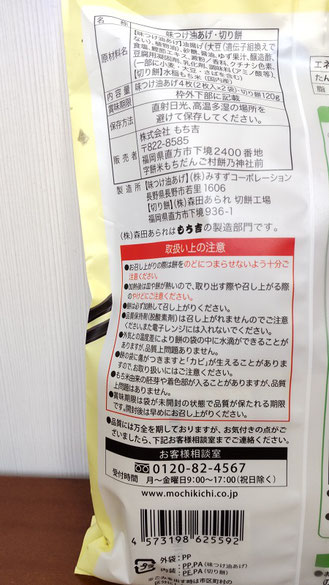 名称 味つけ油あげ・切り餅
原材料名 【味つけ油あげ】油揚げ(大豆(遺伝子組換えで
【切り餅】水稲もち米(国内産)
内容量 味つけ油あげ4枚(2枚入×2袋)・切り餅120g
賞味期限 枠外下部に記載
保存方法 直射日光、高温多湿の場所を
避けて保存してください。
販売者 株式会社 もち吉
〒822-8585
福岡県直方市下境2400番地
字餅米もちだんご村餅乃神社前
製造所 【味つけ油あげ】(株)みすずコーポレーション
長野県長野市若里1606
【切り餅】(株)森田あられ 切餅工場
福岡県直方市下境936-1
(株)森田あられはもち吉の製造部門です。
取扱い上の注意
●お召し上がりの際は餅をのどにつまらせないよう十分ご
注意ください。
●加熱後は皿や餅が熱いので、取り出す際や召し上がる際
のやけどにご注意ください。
●餅は必ず加熱して召し上がりください。
●品質保持剤(脱酸素剤)は召し上がれませんのでご注意
ください。また電子レンジには入れないでください。
●外気との温度差により餅の袋の中に水滴ができることが
ありますが、品質上問題ありません。
●餅の袋に傷がつきますと「カビ」が生えることがありま
すので、お取り扱いにはご注意ください。
●もち米由来の胚芽や着色部が入ることがありますが、品質
上問題ありません。
●賞味期限は袋が未開封の状態で品質が保たれる期限
です。開封後は早めにお召し上がりください。
●品質には万全を期しておりますが、お気付きの点がご
ざいましたら、下記お客様相談室までご連絡ください。
お客様相談室
0120-82-4567
受付時間 月～金曜日9:00～17:00(祝日除く)
www.mochikichi.co.jp
4 573198 625592
プラ
外袋：PP
内袋：PP,PA(味つけ油あげ)
PE,PA(切り餅)